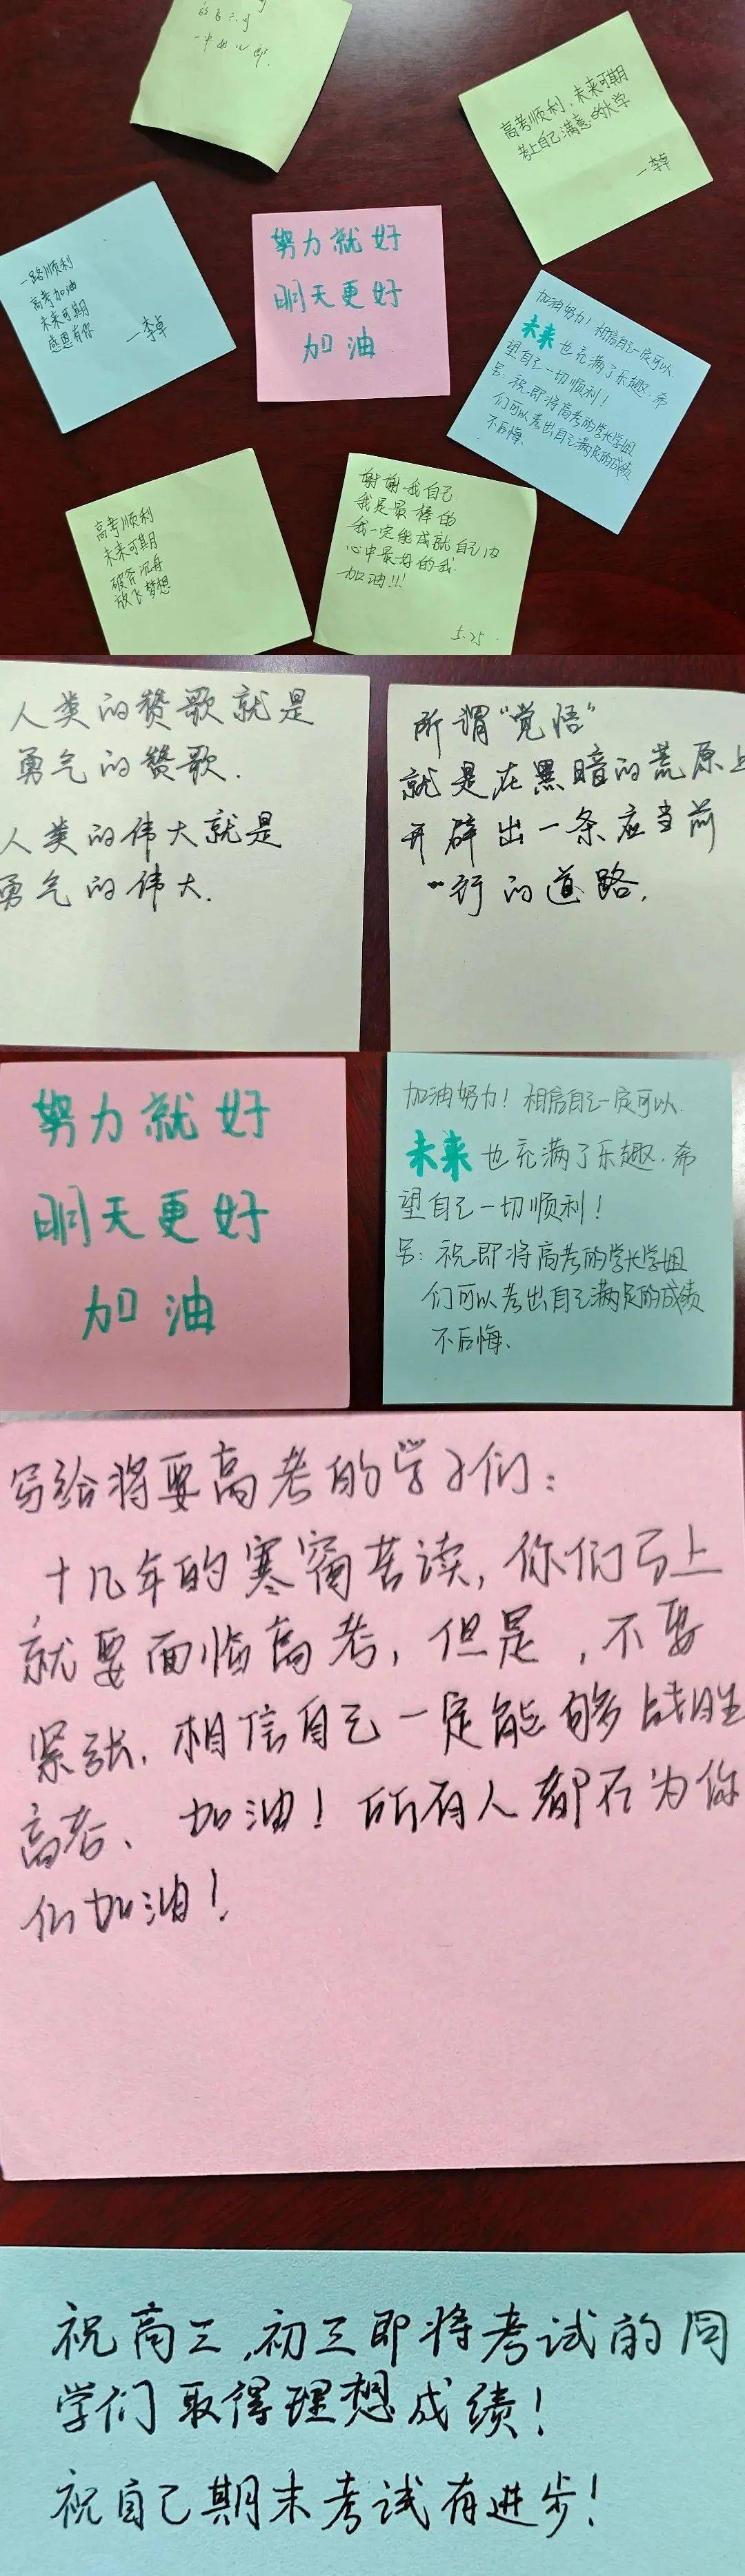 高考顺利,未来可期
考上自己满意的大学
一李卓
一路顺利
高考加油
未来可期
感恩有你
一李卓
努力就好
明天更好
加油
加油努力!相信自己一定可以
未来也充满了乐趣.希
望自己一切顺利!
另:祝即将高考的学长学姐
们可以考出自己满足的成绩
不后悔.
高考顺利
未来可期
破釜沉舟
放飞梦想
谢谢我自己
我是最棒的
我一定能成就自己内
心中最好的我.
加油!!!
5.25.
人类的赞歌就是
勇气的赞歌.
人类的伟大就是
勇气的伟大.
所谓“觉悟”
就是在黑暗的荒原上
开辟出一条应当前
行的道路.
努力就好
明天更好
加油
加油努力!相信自己一定可以.
未来也充满了乐趣.希
望自己一切顺利!
另:祝即将高考的学长学姐
们可以考出自己满足的成绩
不后悔.
写给将要高考的学子们:
十几年的寒窗苦读,你们马上
就要面临高考,但是,不要
紧张.相信自己一定能够战胜
高考、加油!所有人都在为你
们加油!
祝高三,初三即将考试的同
学们取得理想成绩!
祝自己期末考试有进步!